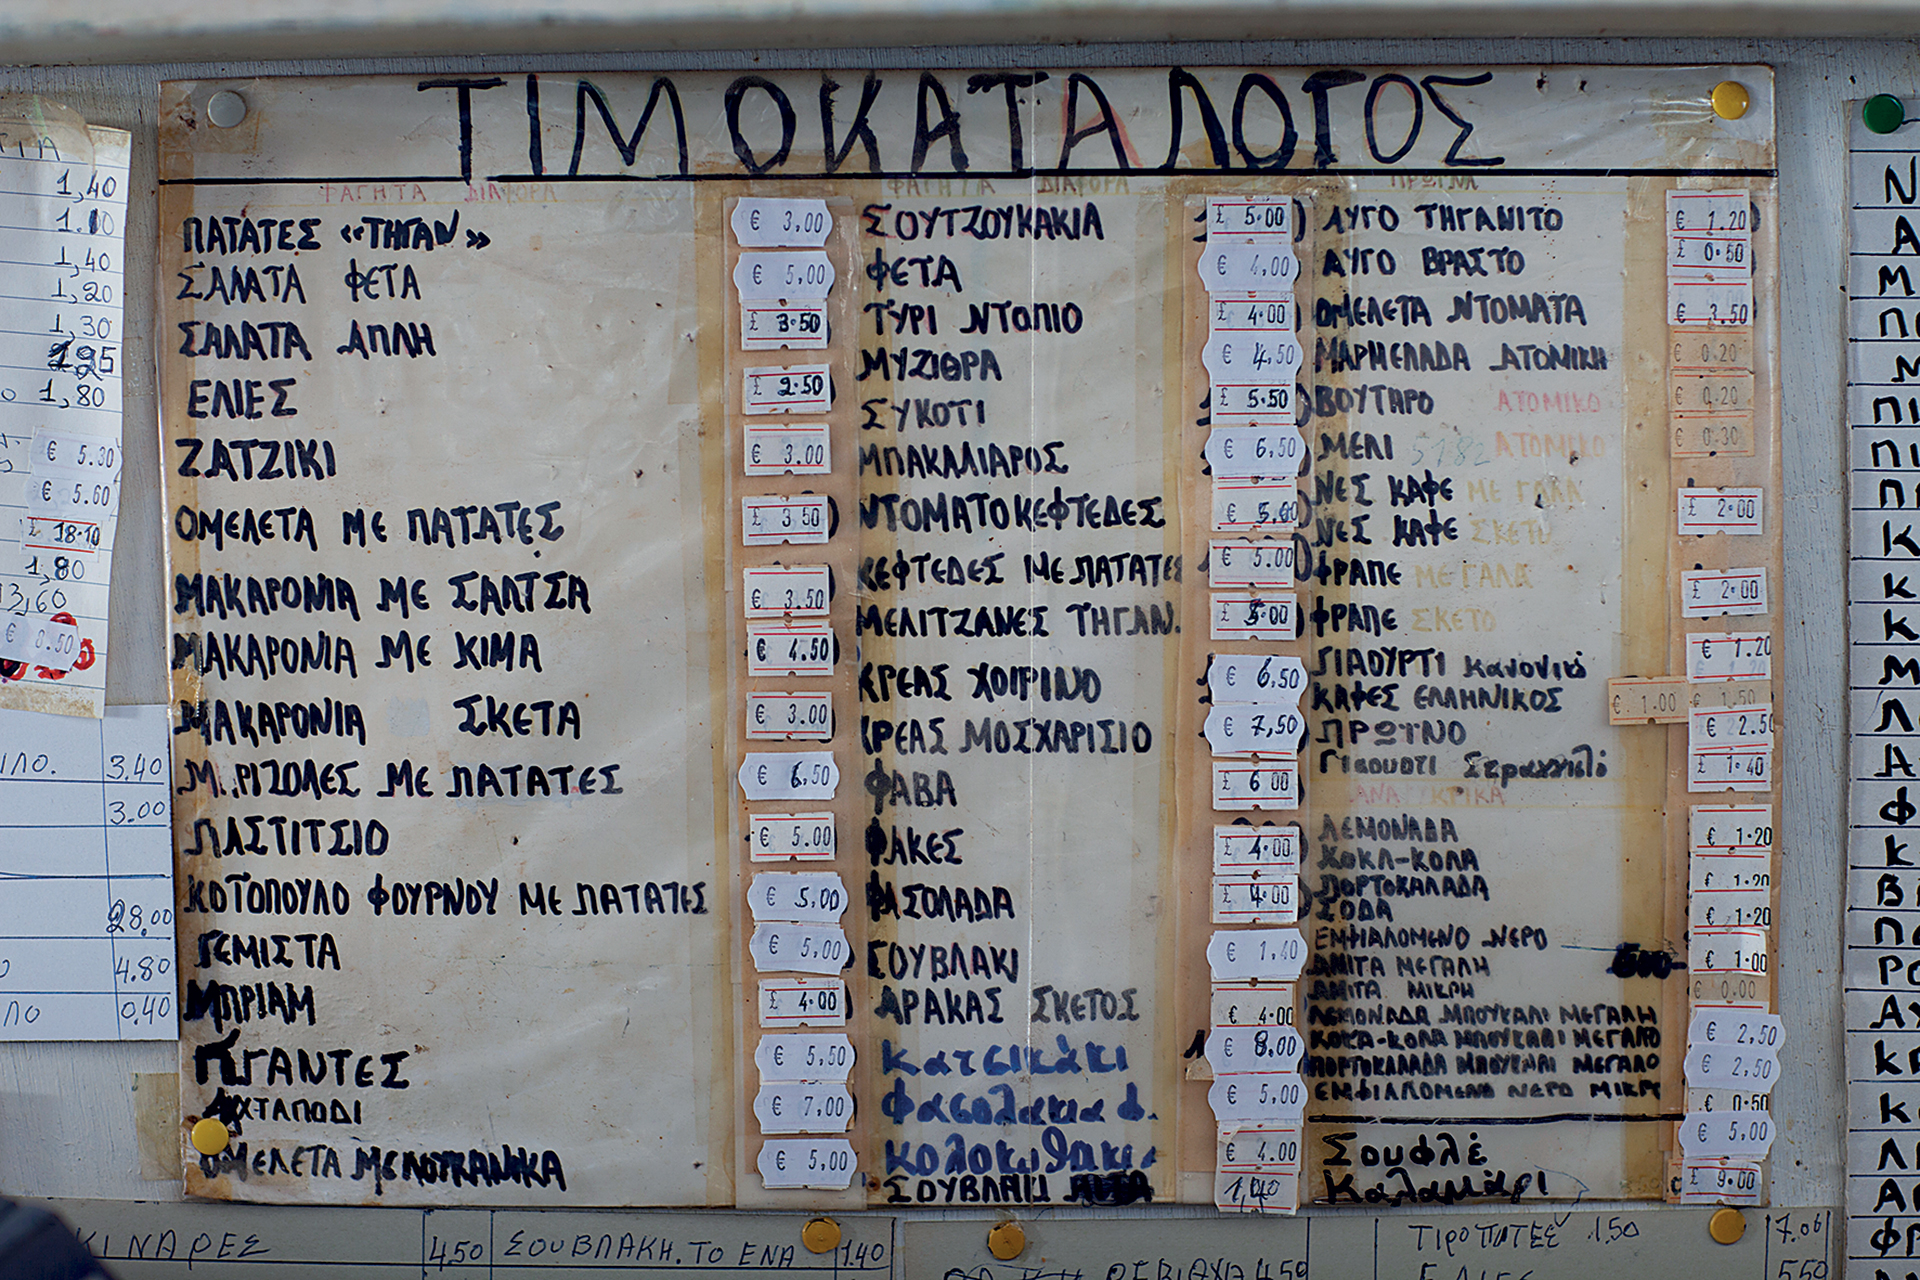 ΤΙΜΟΚΑΤΑΛΟΓΟΣ
ΦΑΓΗΤΑ ΔΙΑΦΟΡΑ
ΠΑΤΑΤΕΣ «ΤΗΓΑΝ» € 3,00
ΣΑΛΑΤΑ ΦΕΤΑ € 5,00
ΣΑΛΑΤΑ ΑΠΛΗ £ 3·50
ΕΛΙΕΣ £ 2·50
ΖΑΤΖΙΚΙ € 3.00
ΟΜΕΛΕΤΑ ΜΕ ΠΑΤΑΤΕΣ £ 3 50
ΜΑΚΑΡΟΝΙΑ ΜΕ ΣΑΛΤΣΑ € 3.50
ΜΑΚΑΡΟΝΙΑ ΜΕ ΚΙΜΑ € 4.50
ΜΑΚΑΡΟΝΙΑ ΣΚΕΤΑ € 3.00
Μ.ΡΙΖΟΛΕΣ ΜΕ ΠΑΤΑΤΕΣ € 6,50
ΠΑΣΤΙΤΣΙΟ € 5.00
ΚΟΤΟΠΟΥΛΟ ΦΟΥΡΝΟΥ ΜΕ ΠΑΤΑΤΕΣ € 5,00
ΓΕΜΙΣΤΑ € 5,00
ΜΠΡΙΑΜ £ 4·00
ΓΙΓΑΝΤΕΣ € 5,50
ΑΧΤΑΠΟΔΙ € 7,00
ΟΜΕΛΕΤΑ ΜΕ ΛΟΥΚΑΝΙΚΑ € 5,00
ΦΑΓΗΤΑ ΔΙΑΦΟΡΑ
ΣΟΥΤΖΟΥΚΑΚΙΑ £ 5·00
ΦΕΤΑ € 4,00
ΤΥΡΙ ΝΤΟΠΙΟ £ 4·00
ΜΥΖΙΘΡΑ € 4,50
ΣΥΚΟΤΙ £ 5·50
ΜΠΑΚΑΛΙΑΡΟΣ € 6,50
ΝΤΟΜΑΤΟΚΕΦΤΕΔΕΣ € 5,00
ΚΕΦΤΕΔΕΣ ΜΕ ΠΑΤΑΤΕΣ € 5.00
ΜΕΛΙΤΖΑΝΕΣ ΤΗΓΑΝ. £ 5·00
ΚΡΕΑΣ ΧΟΙΡΙΝΟ € 6,50
ΚΡΕΑΣ ΜΟΣΧΑΡΙΣΙΟ € 7,50
ΦΑΒΑ £ 6 00
ΦΑΚΕΣ £ 4·00
ΦΑΣΟΛΑΔΑ £ 4·00
ΣΟΥΒΛΑΚΙ € 1,40
ΑΡΑΚΑΣ ΣΚΕΤΟΣ € 4·00
Κατσικάκι € 8,00
Φασολακια φ. € 5,00
Κολοκυθακια € 4.00
ΣΟΥΒΛΑΚΙ 1,40
ΠΡΩΙΝΑ
ΑΥΓΟ ΤΗΓΑΝΙΤΟ € 1.20
ΑΥΓΟ ΒΡΑΣΤΟ £ 0·50
ΟΜΕΛΕΤΑ ΝΤΟΜΑΤΑ € 3.50
ΜΑΡΜΕΛΑΔΑ ΑΤΟΜΙΚΗ € 0·20
ΒΟΥΤΗΡΟ ΑΤΟΜΙΚΟ € 0·20
ΜΕΛΙ ΑΤΟΜΙΚΟ € 0·30
ΝΕΣ ΚΑΦΕ ΜΕ ΓΑΛΑ £ 2·00
ΝΕΣ ΚΑΦΕ ΣΚΕΤΟ
ΦΡΑΠΕ ΜΕ ΓΑΛΑ £ 2·00
ΦΡΑΠΕ ΣΚΕΤΟ
ΓΙΑΟΥΡΤΙ κανονικό € 1.20
ΚΑΦΕΣ ΕΛΛΗΝΙΚΟΣ € 1.00 € 1.50
ΠΡΩΙΝΟ € 2.50
Γιαουρτι Στραγγιστό £ 1·40
ΑΝΑΨΥΚΤΙΚΑ
ΛΕΜΟΝΑΔΑ € 1·20
ΚΟΚΑ-ΚΟΛΑ
ΠΟΡΤΟΚΑΛΑΔΑ € 1·20
ΣΟΔΑ € 1·20
ΕΜΦΙΑΛΟΜΕΝΟ ΝΕΡΟ
ΑΜΙΤΑ ΜΕΓΑΛΗ € 1·00
ΑΜΙΤΑ ΜΙΚΡΗ € 0.00
ΛΕΜΟΝΑΔΑ ΜΠΟΥΚΑΛΙ ΜΕΓΑΛΗ
ΚΟΚΑ-ΚΟΛΑ ΜΠΟΥΚΑΛΙ ΜΕΓΑΛΟ € 2,50
ΠΟΡΤΟΚΑΛΑΔΑ ΜΠΟΥΚΑΛΙ ΜΕΓΑΛΟ € 2,50
ΕΜΦΙΑΛΟΜΕΝΟ ΝΕΡΟ ΜΙΚΡΟ € 0·50
Σουφλέ € 5,00
Καλαμάρι £ 9·00
1,40
1.10
1,40
1,20
1,30
1,80
€ 5.30
€ 5.60
£ 18·10
1,80
13,60
€ 8.50
3.40
3.00
28.00
4.80
0.40
ΚΙΝΑΡΕΣ 4.50
ΣΟΥΒΛΑΚΗ.ΤΟ ΕΝΑ 1.40
ΡΕΒΙΘΧΑ 4.50
ΤΙΡΟΠΙΤΕΣ 1.50
7.00
5.50